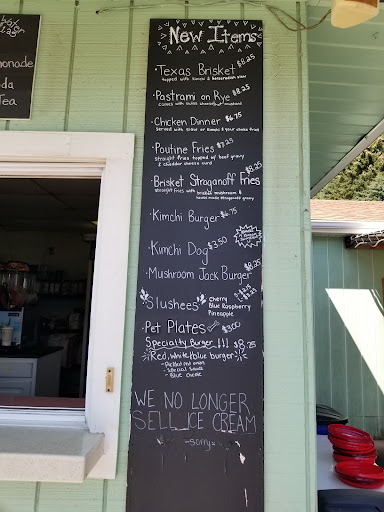 monade
da
Tea
New Items
Texas Brisket $8.25
topped with kimchi & horseradish slaw
Pastrami on Rye $8.25
comes with swiss cheese, mustard
Chicken Dinner $6.75
Served with slaw or Kimchi & your choice fries
Poutine Fries $7.25
straight fries topped w/ beef gravy
& cheddar cheese curd
Brisket Stroganoff Fries $8.25
straight fries with brisket, mushroom &
house made stroganoff gravy
Kimchi Burger $6.75
Kimchi Dog $3.50
Mushroom Jack Burger $8.25
Slushees
Cherry
Blue Raspberry
Pineapple
Pet Plates $3.00
Specialty Burger!!! $8.75
Red, white/blue burger!!
- Pickled red onion
- special sauce
- Blue cheese
WE NO LONGER
SELL ICE CREAM
- sorry -